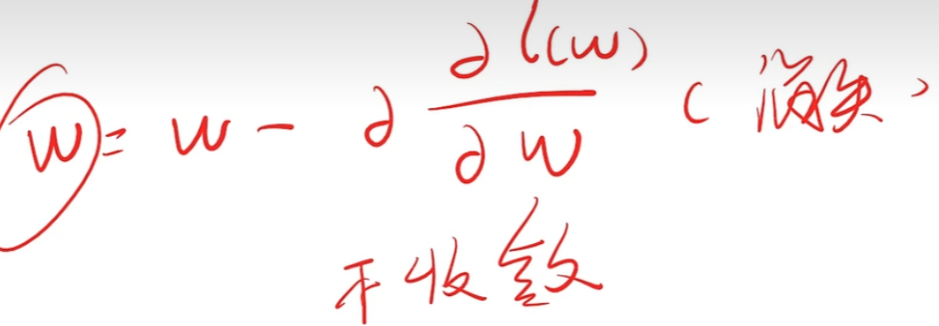 w = w - ∂ ∂l(w)/∂w (消失)
不收敛